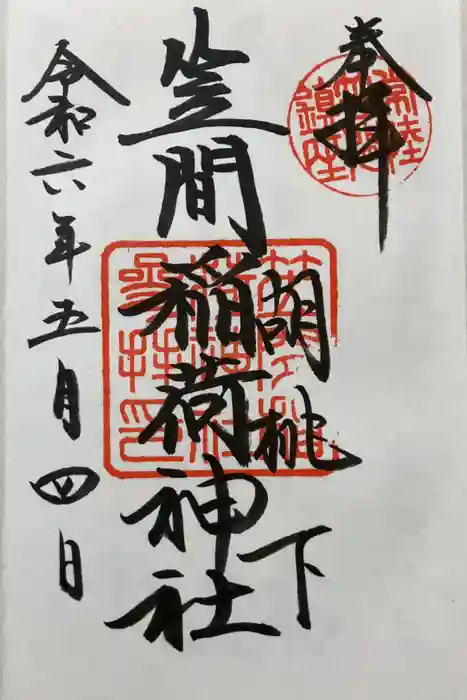 奉拝
胡桃下
笠間稲荷神社
令和六年五月四日